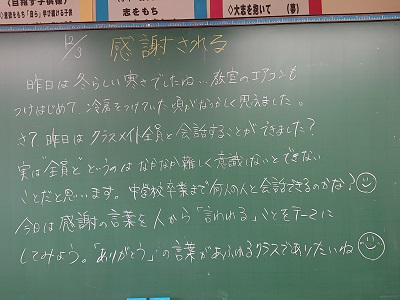 (目指す子供像)
○意欲をもち「自ら」学び続ける子供
志をもち
◇大志を抱いて (夢)
12/3 感謝される
昨日は冬らしい寒さでしたね…教室のエアコンも
つけはじめて、冷房をつけていた頃がなつかしく思えました。
さて昨日はクラスメイト全員と会話することができましたか?
実は"全員と"というのはなかなか難しく意識しないとできない
ことだと思います。中学校卒業まで何人の人と会話できるのかな?
今日は感謝の言葉を人から「言われる」ことをテーマに
してみよう。「ありがとう」の言葉があふれるクラスでありたいね